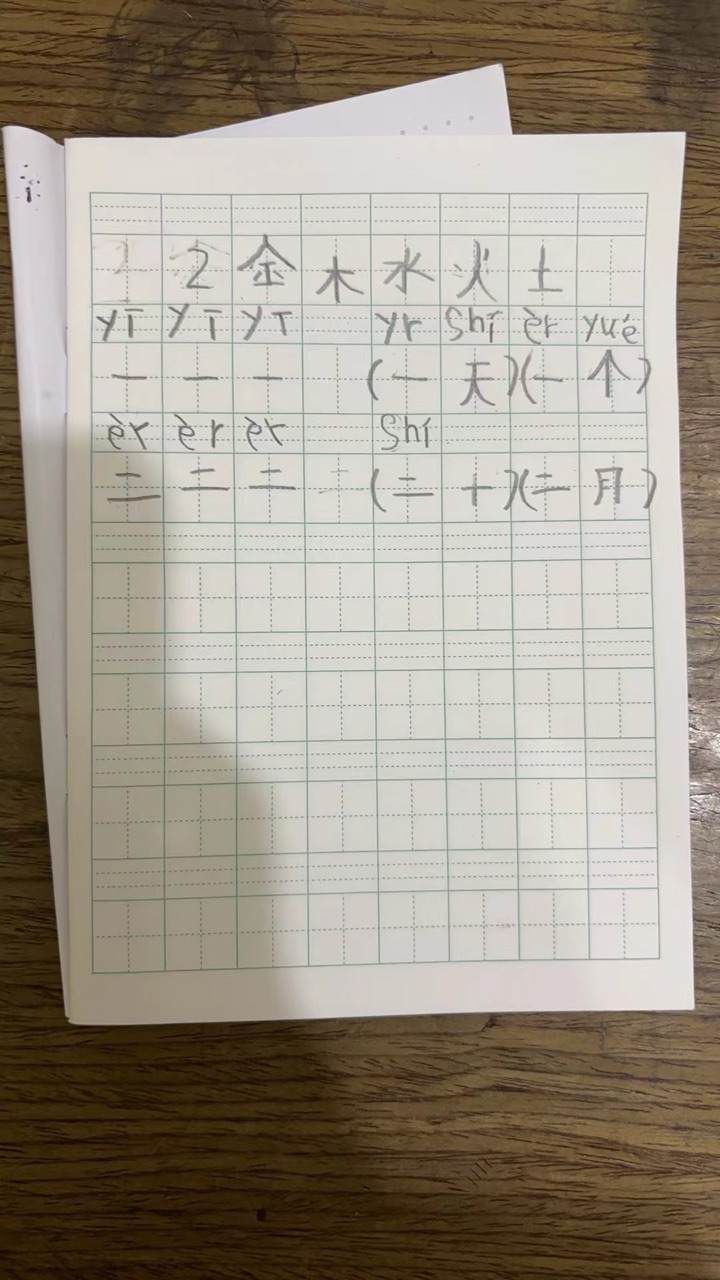 2 金 木 水 火 土
yī yī yī yr shí èr yuè
一 一 一 (一 天)(一 个)
èr èr èr shí
二 二 二 二 (二 十)(二 月)